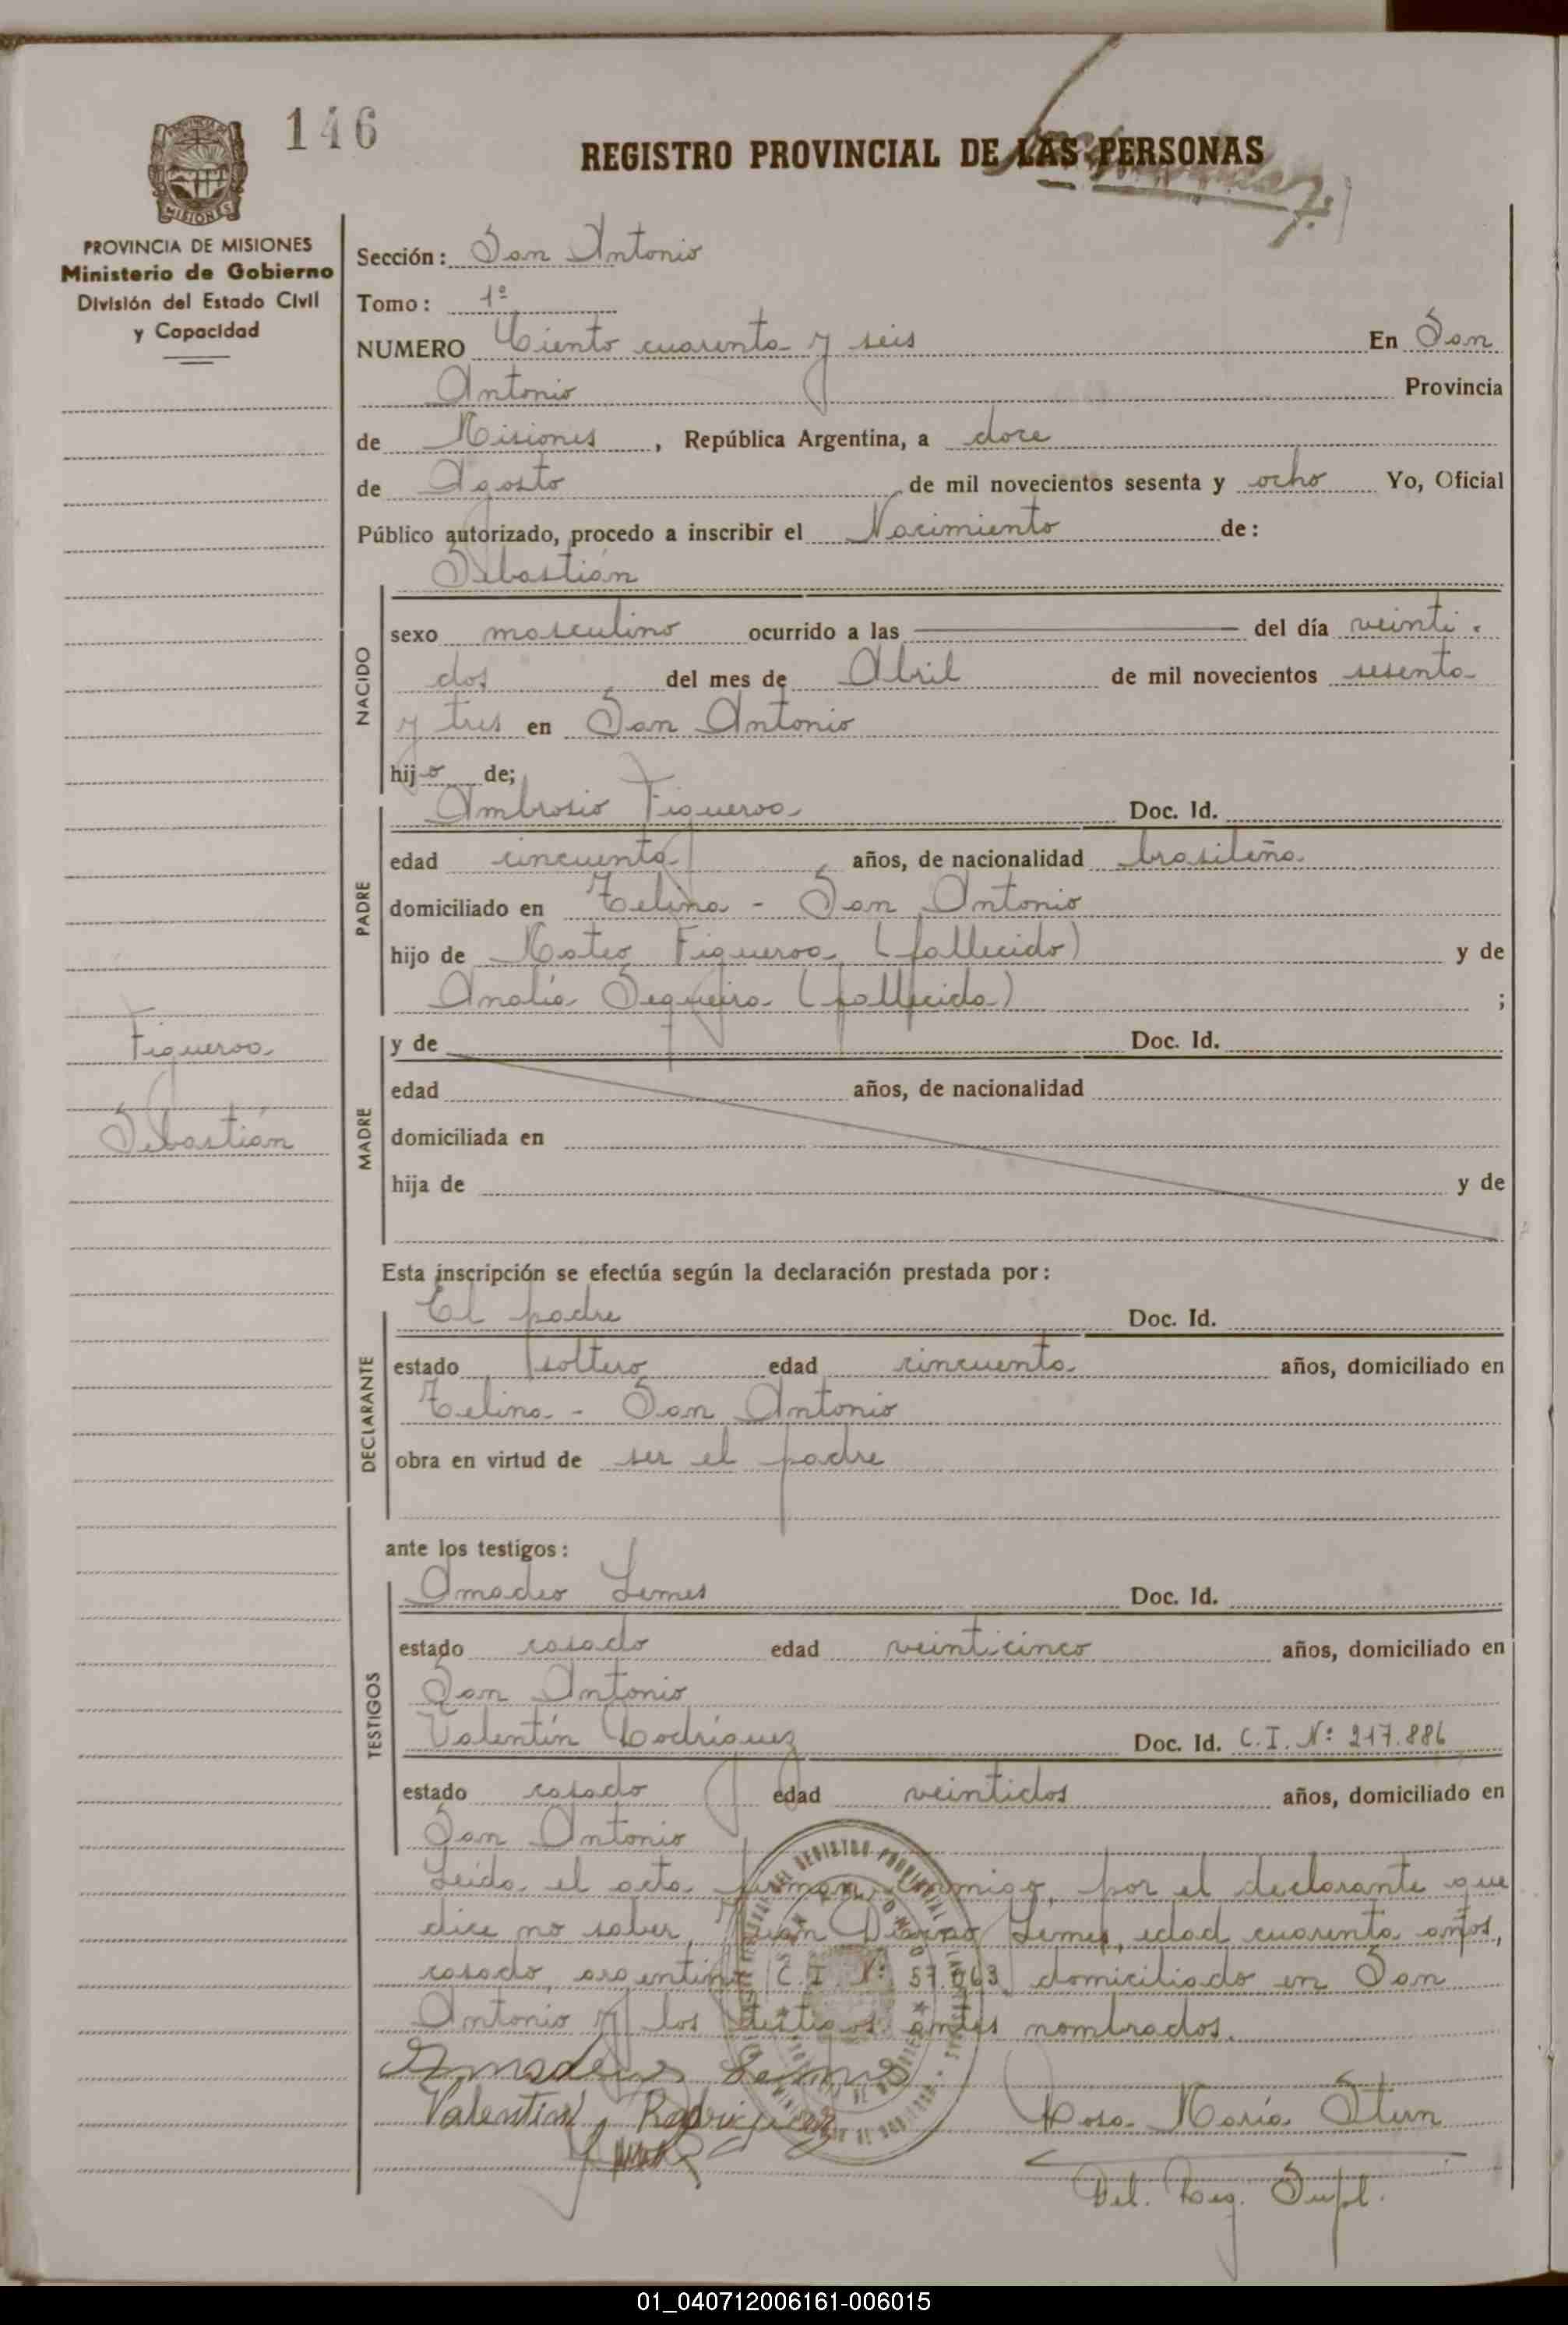 146
REGISTRO PROVINCIAL DE LAS PERSONAS
MISIONES
PROVINCIA DE MISIONES
Ministerio de Gobierno
División del Estado Civil
y Capacidad
Sección: San Antonio
Tomo: 1º
NUMERO Ciento cuarenta y seis En San
Antonio Provincia
de Misiones, República Argentina, a doce
de Agosto de mil novecientos sesenta y ocho Yo, Oficial
Público autorizado, procedo a inscribir el Nacimiento de:
Sebastián
NACIDO
sexo masculino ocurrido a las del día veinti-
dos del mes de Abril de mil novecientos sesenta
y tres en San Antonio
hijo de;
PADRE
Ambrosio Figueroa Doc. Id.
edad cincuenta años, de nacionalidad brasileña
domiciliado en Celina - San Antonio
hijo de Mateo Figueroa (fallecido) y de
Analía Sequeira (fallecida) ;
Figueroa
Sebastián
MADRE
y de Doc. Id.
edad años, de nacionalidad
domiciliada en
hija de y de
Esta inscripción se efectúa según la declaración prestada por:
DECLARANTE
El padre Doc. Id.
estado soltero edad cincuenta años, domiciliado en
Celina - San Antonio
obra en virtud de ser el padre
ante los testigos:
TESTIGOS
Amadeo Lemes Doc. Id.
estado casado edad veinticinco años, domiciliado en
San Antonio
Valentín Rodríguez Doc. Id. C.I. Nº 217.886
estado casado edad veintidos años, domiciliado en
San Antonio
Leída el acta firman conmigo, por el declarante que
dice no saber, Juan Lemes, edad cuarenta años,
casado, argentino C.I. Nº 57.063 domiciliado en San
Antonio y los testigos antes nombrados.
Amadeo Lemes
Valentin Rodriguez
Rosa María Stern
Del. Reg. Supl.
01_040712006161-006015